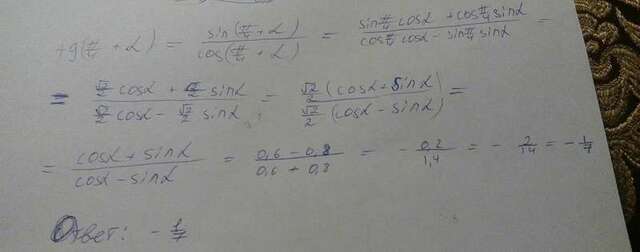 tg(π/4 + α) = sin(π/4 + α)/cos(π/4 + α) = (sin π/4 cosα + cos π/4 sinα)/(cos π/4 cosα - sin π/4 sinα) =
= (√2/2 cosα + √2/2 sinα)/(√2/2 cosα - √2/2 sinα) = (√2/2 (cosα + sinα))/(√2/2 (cosα - sinα)) =
= (cosα + sinα)/(cosα - sinα) = (0,6 - 0,8)/(0,6 + 0,8) = - 0,2/1,4 = - 2/14 = - 1/7
Ответ: - 1/7